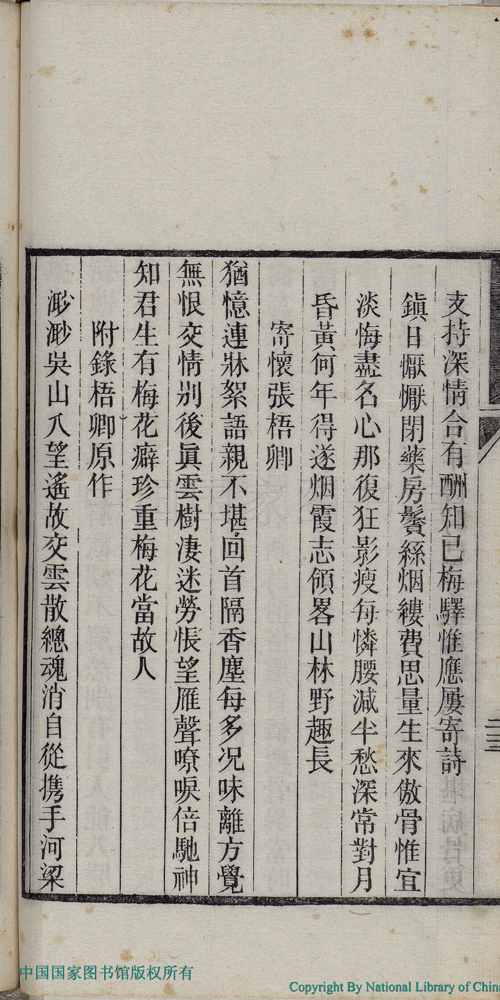 支持深情合有酬知已梅驛惟應屢寄詩
鎭日懨懨閉藥房鬢絲烟縷費思量生來傲骨惟宜
淡悔盡名心那復狂影瘦每憐腰減半愁深常對月
昏黃何年得遂烟霞志領畧山林野趣長
寄懷張梧卿
猶憶連牀絮語親不堪回首隔香塵每多況味離方覺
無恨交情別後眞雲樹淒迷勞悵望雁聲嘹唳倍馳神
知君生有梅花癖珍重梅花當故人
附錄梧卿原作
渺渺吳山入望遙故交雲散總魂消自從携手河梁
中国国家图书馆版权所有
Copyright By National Library of Chin